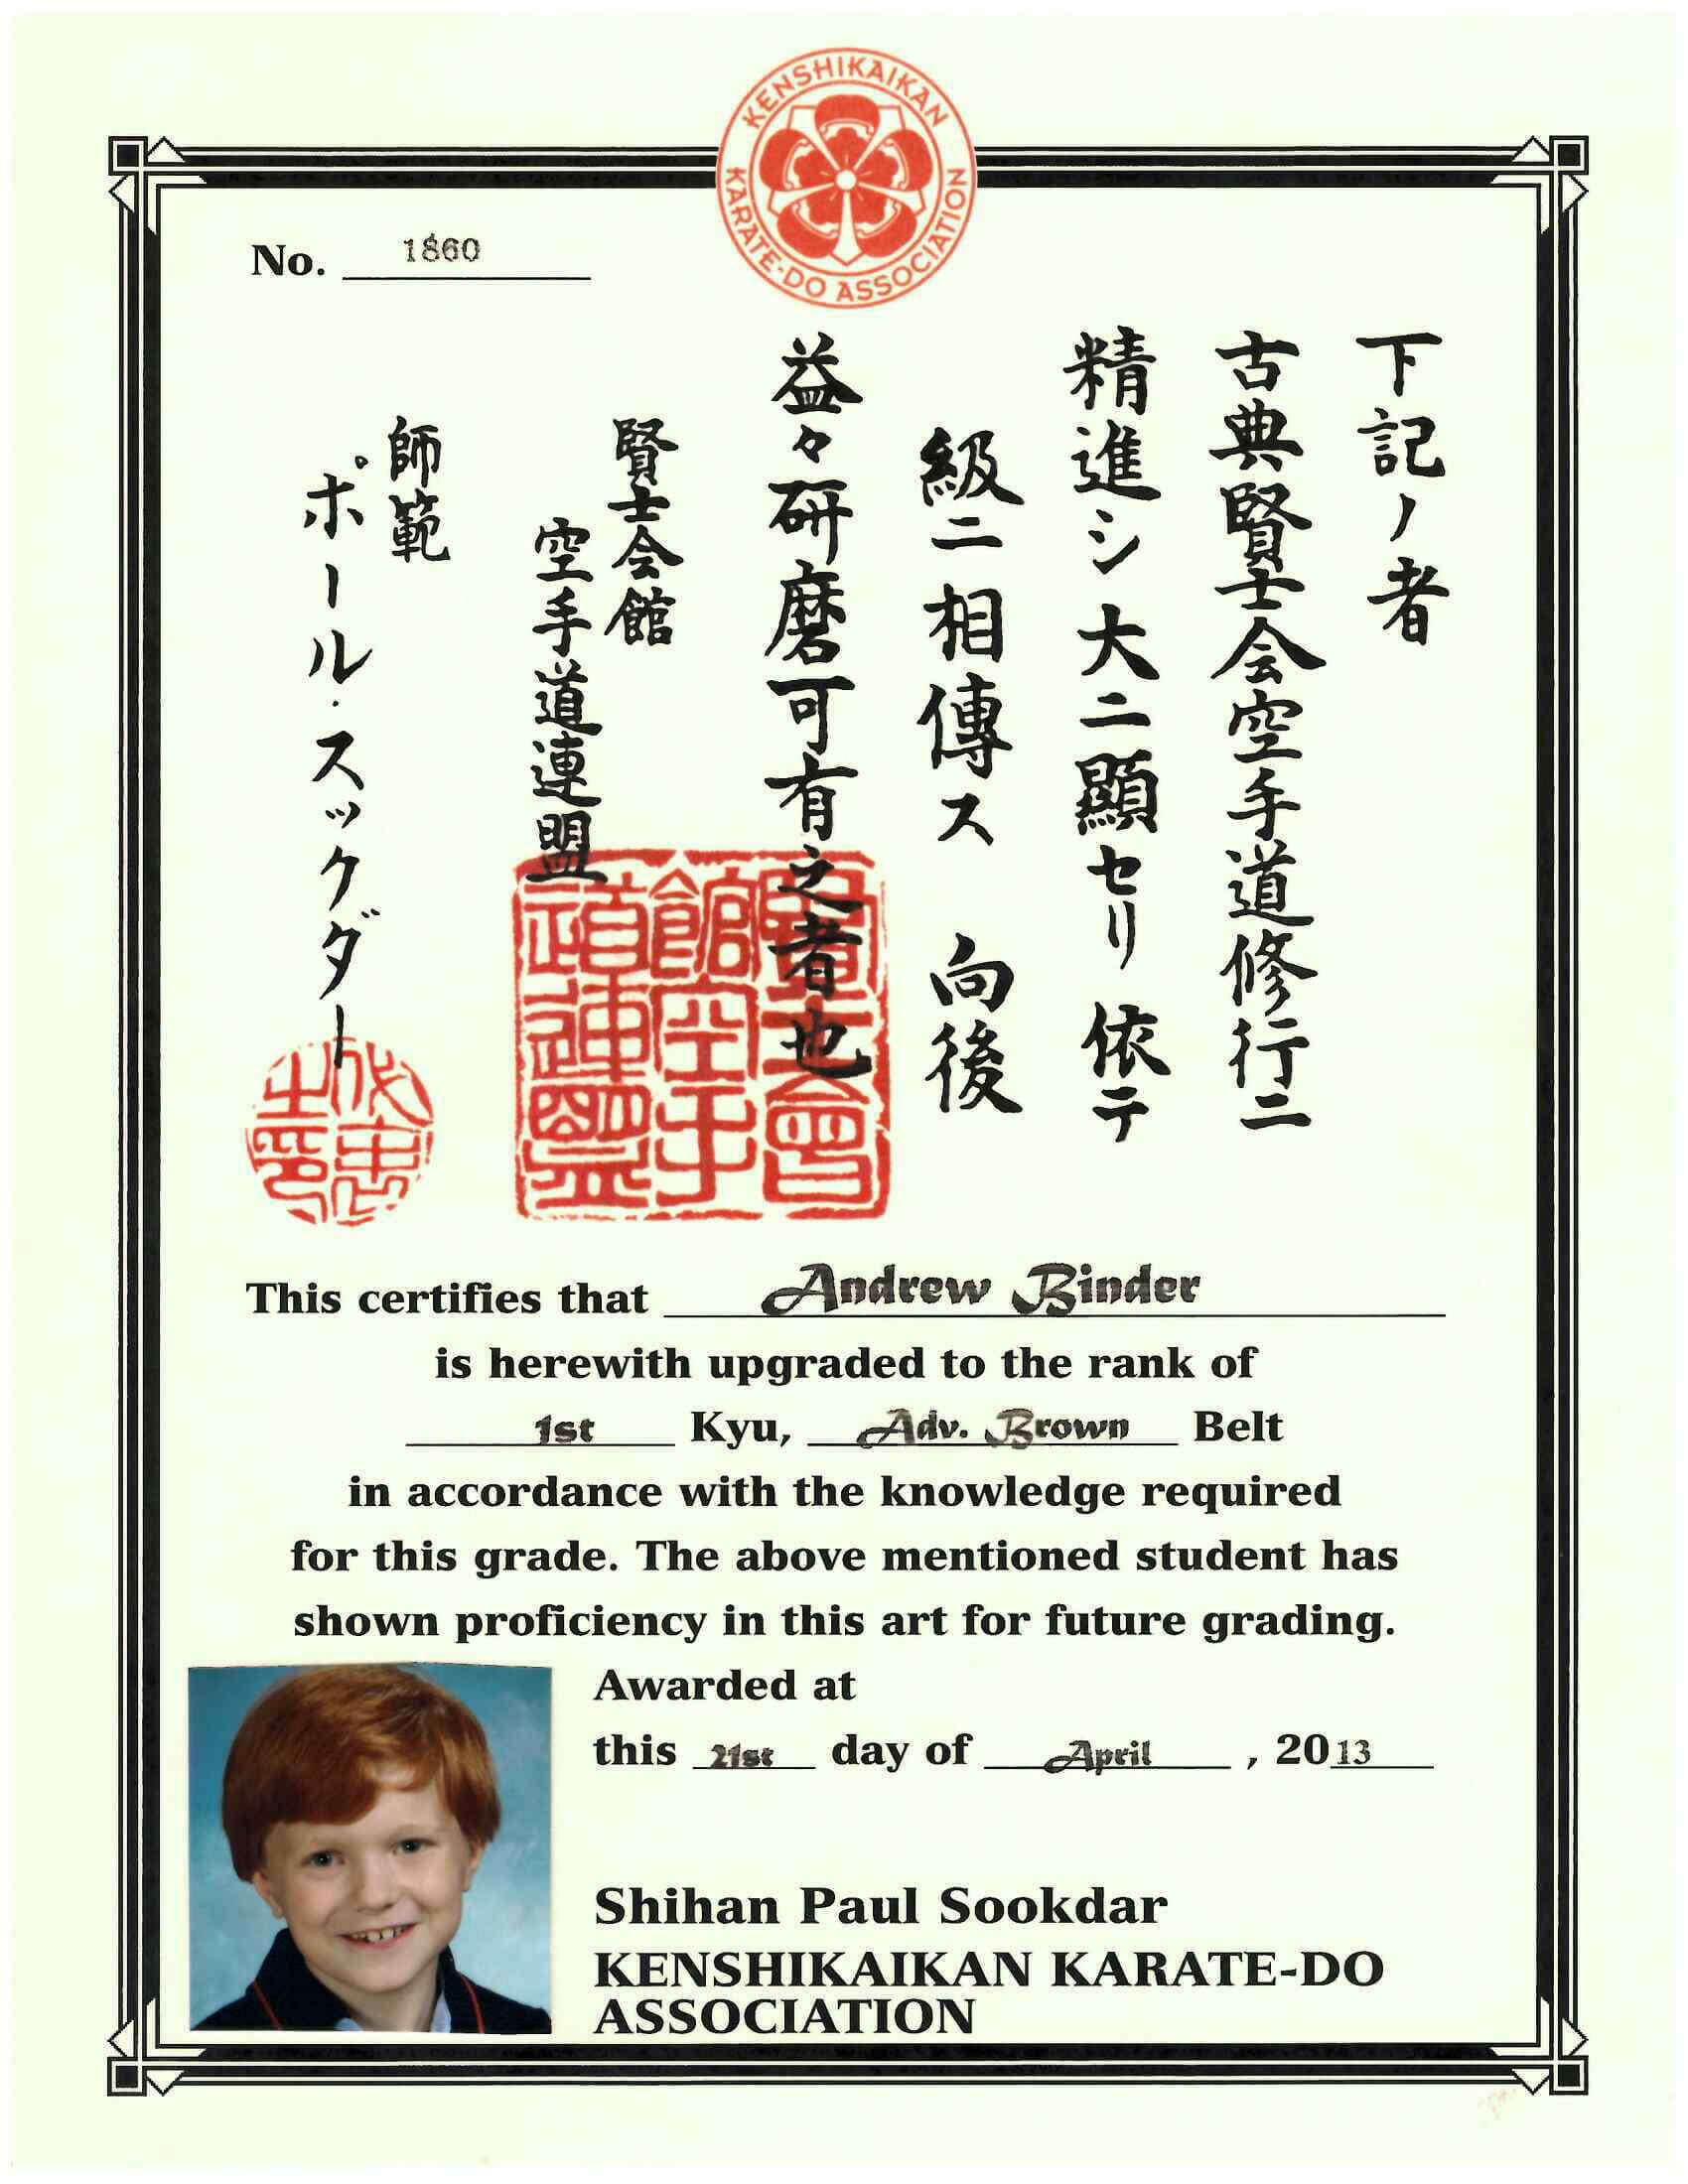 KENSHIKAIKAN
KARATE-DO ASSOCIATION
No. 1860
下記ノ者
古典賢士会空手道修行ニ
精進シ大ニ顯セリ 依テ
級ニ相傳ス 向後
益々研磨可有之者也
賢士会館
空手道連盟
師範
ポール・スックダー
賢士會
館空手
道連盟
This certifies that Andrew Binder
is herewith upgraded to the rank of
1st Kyu, Adv. Brown Belt
in accordance with the knowledge required
for this grade. The above mentioned student has
shown proficiency in this art for future grading.
Awarded at
this 21st day of April , 2013
Shihan Paul Sookdar
KENSHIKAIKAN KARATE-DO
ASSOCIATION